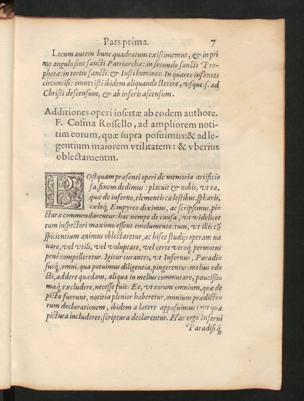 Pars prima. 7
Locum autem hunc quadratum existimemus, & in pri
mo angulo sint sancti Patriarchæ: in secundo sancti Pro-
phetæ: in tertio sancti: & Iusti homines. In quarto infantes
circuncisi: omnes isti ibidem aliquando stetere, usque; s. ad
Christi descensum, & ab inferis ascensum.
Additiones operi insertæ ab eodem authore.
F. Cosma Rossello, ad ampliorem noti-
tiam eorum, quæ supra posuimus: & ad le-
gentium maiorem vtilitatem: & vberius
oblectamentum.
POstquam præsenti operi de memoria artificio
sa, finem dedimus: placuit & nobis, vt ea,
quæ de inferno, elementis cælestibus. sphæris,
cæloq; Empyreo diximus, ac scripsimus pi-
ctura commendarentur: hac nempe de causa, vt videlicet
tum inspectori maximo essent emolumento: tum, vt illi
spicientium animus oblectaretur, ac hisce studijs operam na
uare, vel vtili, vel voluptate, vel certe vtroq; permotus
pene compelleretur. Igitur curantes, vt Infernus, Paradi
susq; omni, qua potuimus diligentia, pingerentur: melius edo
cti, addere quædam, aliqua in melius commutare, paucissi-
maq; excludere, necesse fuit. Et, vt eorum omnium, quæ de
picta fuerunt, notitia plenior haberetur, omnium prædicto-
rum declarationem, ibidem a latere apposuimus: vt quæ
pictura includeret; scriptura declararentur. Hac ergo Inferni
Paradisi q;